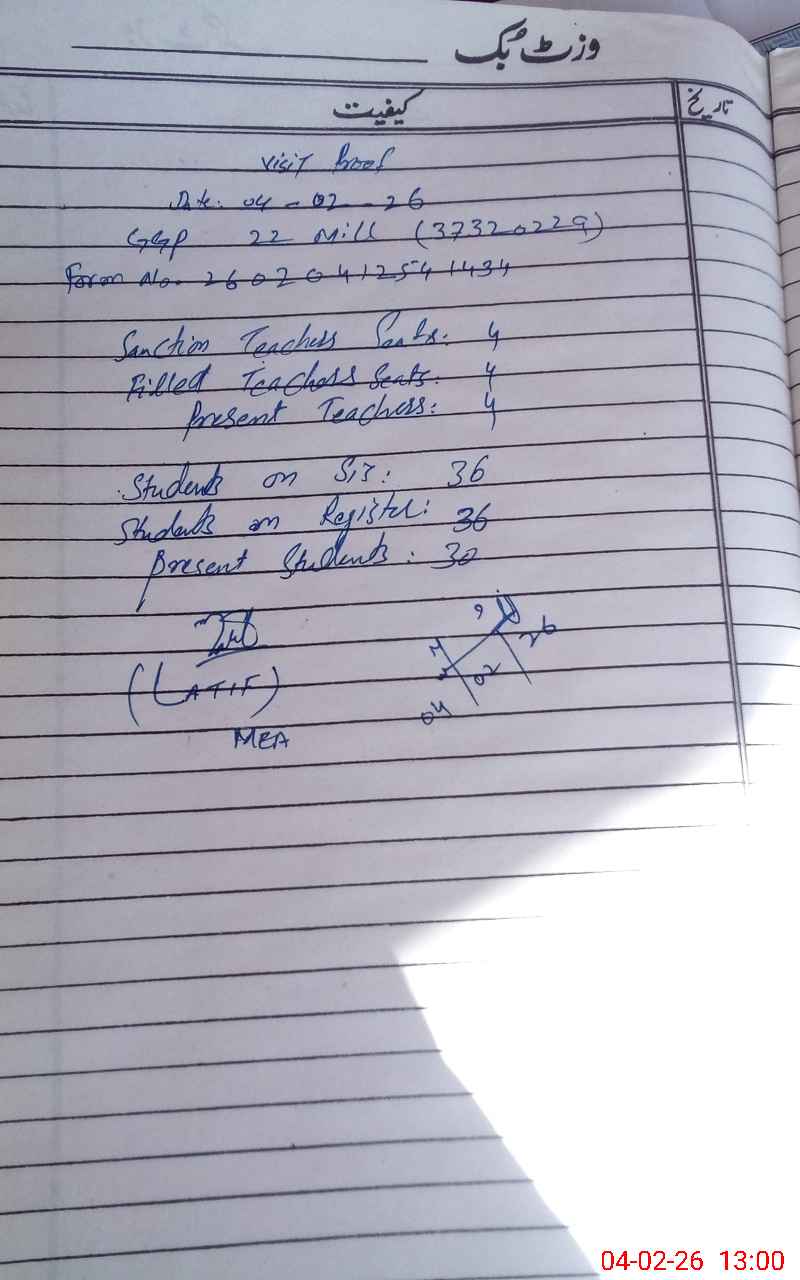 وزٹ بُک
کیفیت
تاریخ
Visit Proof
Date: 04-02-26
GGP 22 Mill (37320229)
Form No. 26020412541434
Sanction Teachers Seats: 4
Filled Teachers Seats: 4
Present Teachers: 4
Students on SIS: 36
Students on Register: 36
Present Students: 30
(LATIF)
MEA
04 02 26
04-02-26 13:00